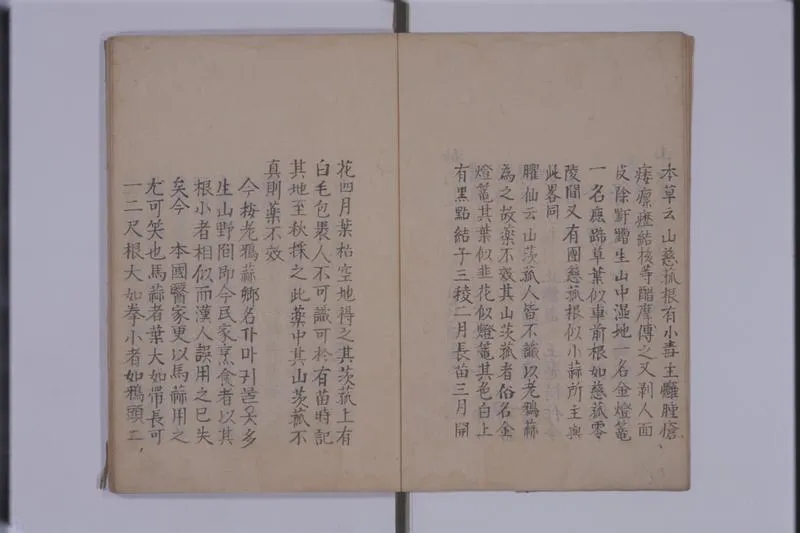 本草云山慈菰根有小毒主癰腫瘡
瘻瘰癧結核等醋摩傅之又剥人面
皮除䵟䵳生山中濕地一名金燈篭
一名鹿蹄草葉似車前根如慈菰零
陵間又有團慈菰根似小蒜所主與
此畧同
臞仙云山茨菰人皆不識以老鴉蒜
為之故薬不效其山茨菰者俗名金
燈篭其葉似韭花似燈篭其色白上
有黑點結子三稜二月長苗三月開
花四月葉枯空地得之其茨菰上有
白毛包裹人不可識可於有苗時記
其地至秋採之此薬中其山茨菰不
真則薬不效
今按老鴉蒜鄕名가마귀 多
生山野間即今民家烹食者以其
根小者相似而漢人誤用之已失
矣今 本國醫家更以馬蒜用之
尤可笑也馬蒜者葉大如帶長可
一二尺根大如拳小者如鴉頭二